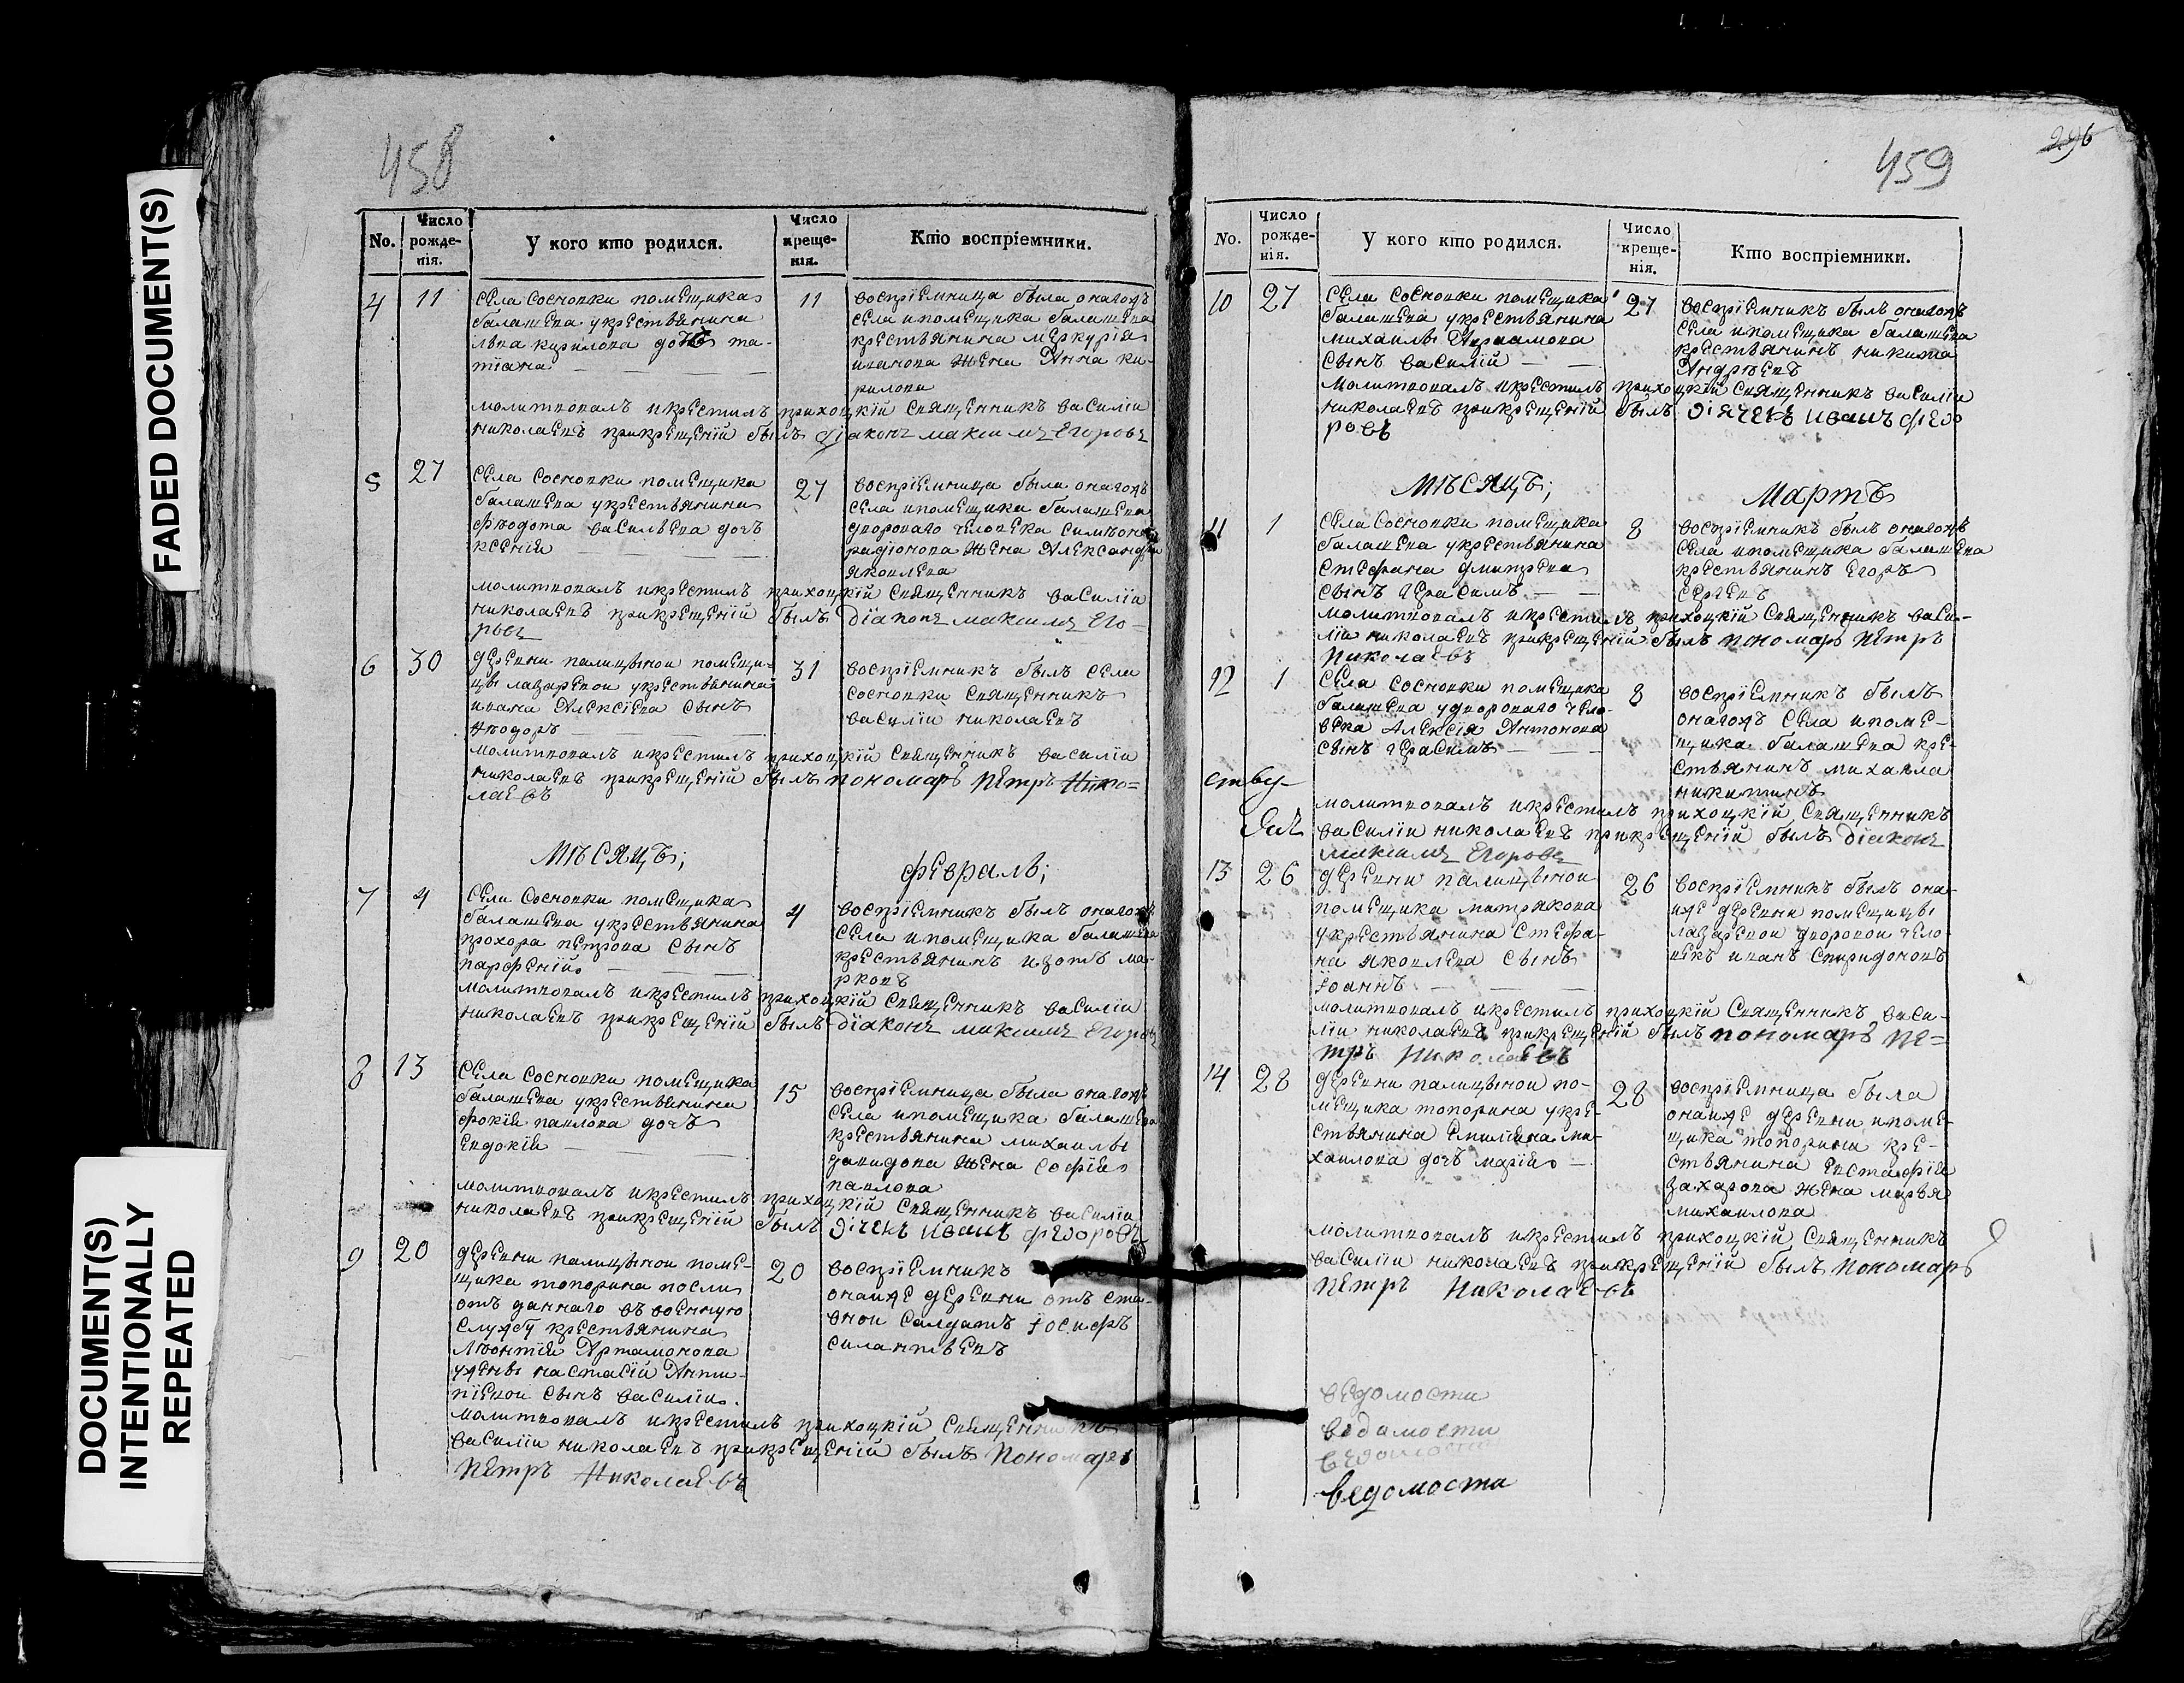 FADED DOCUMENT(S)
DOCUMENT(S)
INTENTIONALLY
REPEATED
458
No.
Число рожде-нія.
У кого кто родился.
Число креще-нія.
Кто воспріемники.
4 11
села сосновки помещика
балашева укрестьянина
льва кирилова дочь та-
тіана
11
воспріемница была оногожъ
села ипомещика балашева
крестьянина меркурія
иванова жена Анна ки-
рилова
молитвовалъ икрестилъ приходцкій священникъ василіи
николаевъ прикрещеніи былъ діаконъ максимъ Егоровъ
5 27
села сосновки помещика
балашева укрестьянина
федота васильева дочь
ксенія
27
воспріемница была оногожъ
села ипомещика балашева
двороваго человека симеона
радіонова жена Александра
яковлева
молитвовалъ икрестилъ приходцкій священникъ василіи
николаевъ прикрещеніи былъ діаконъ максимъ Его-
ровъ
6 30
деревни палицыной помещи-
цы лазаревои укрестьянина
ивана Алексіева сынъ
Ѳеодоръ
31
воспріемникъ былъ села
сосновки священникъ
василіи николаевъ
молитвовалъ икрестилъ приходцкій священникъ василіи
николаевъ прикрещеніи былъ пономарь Петръ Нико=
лаевъ
мѣсяцъ; февраль;
7 4
села сосновки помещика
балашева укрестьянина
прохора петрова сынъ
парфеній
4
воспріемникъ былъ оногожъ
села ипомещика балашева
крестьянинъ изотъ ма-
рковъ
молитвовалъ икрестилъ приходцкій священникъ василіи
николаевъ прикрещеніи былъ діаконъ максимъ Егоровъ
8 13
села сосновки помещика
балашева укрестьянина
фокія павлова дочь
евдокія
15
воспріемница была оногожъ
села ипомещика балашева
крестьянина михаилы
давидова жена софія
павлова
молитвовалъ икрестилъ приходцкій священникъ василіи
николаевъ прикрещеніи былъ дічекъ иванъ федоровъ
9 20
деревни палицыной поме-
щика топорина посли
отъ даннаго въ военную
службу крестьянина
Леонтія Артамонова
ужены настасіи Анти-
піевои сынъ василіи.
20
воспріемникъ
онаиже деревни отъ ста-
внои салдатъ іосифъ
силантьевъ
молитвовалъ икрестилъ приходцкій священникъ
василіи николаевъ прикрещеніи былъ Пономарь
Петръ Николаевъ
459
296
No.
Число рожде-нія.
У кого кто родился.
Число креще-нія.
Кто воспріемники.
10 27
села сосновки помещика
балашева укрестьянина
михаилы Варламова
сынъ василій
27
воспріемникъ былъ оногожъ
села ипомещика балашева
крестьянинъ никита
Андреевъ
молитвовалъ икрестилъ приходцкій священникъ василіи
николаевъ прикрещеніи былъ діячекъ иванъ федо
ровъ
мѣсяцъ; Мартъ
11 1
села сосновки помещика
балашева укрестьянина
стефана дмитрева
сынъ герасимъ
8
воспріемникъ былъ оногожъ
села ипомещика балашева
крестьянинъ егоръ
сергеевъ
молитвовалъ икрестилъ приходцкій священникъ васи-
ліи николаевъ прикрещеніи былъ пономарь Петръ
Николаевъ
12 1
села сосновки помещика
балашева удвороваго чело-
века Алексія Антонова
сынъ герасимъ
8
воспріемникъ былъ
оногожъ села ипоме-
щика балашева кре-
стьянинъ михаила
никитинъ
ству-
молитвовалъ икрестилъ приходцкій священникъ
василіи николаевъ прикрещеніи былъ діаконъ
максимъ Егоровъ
13 26
деревни палицыной
помещика митрякова
укрестьянина стефа-
на яковлева сынъ
іоаннъ
26
воспріемникъ былъ она-
иже деревни помещицы
лазаревои дворовои чело-
векъ иванъ спиридоновъ
молитвовалъ икрестилъ приходцкій священникъ васи-
ліи николаевъ прикрещеніи былъ пономарь Пе=
тръ Николаевъ
14 28
деревни палицыной по-
мещика топорина укре-
стьянина емиліана ми-
хаилова дочь марія
28
воспріемница была
онаиже деревни ипоме-
щика топорина кре-
стьянина евстафія
захарова жена марья
михаилова
молитвовалъ икрестилъ приходцкій священникъ
василіи николаевъ прикрещеніи былъ пономарь
Петръ Николаевъ
ведомости
ведомости
ведомости
ведомости